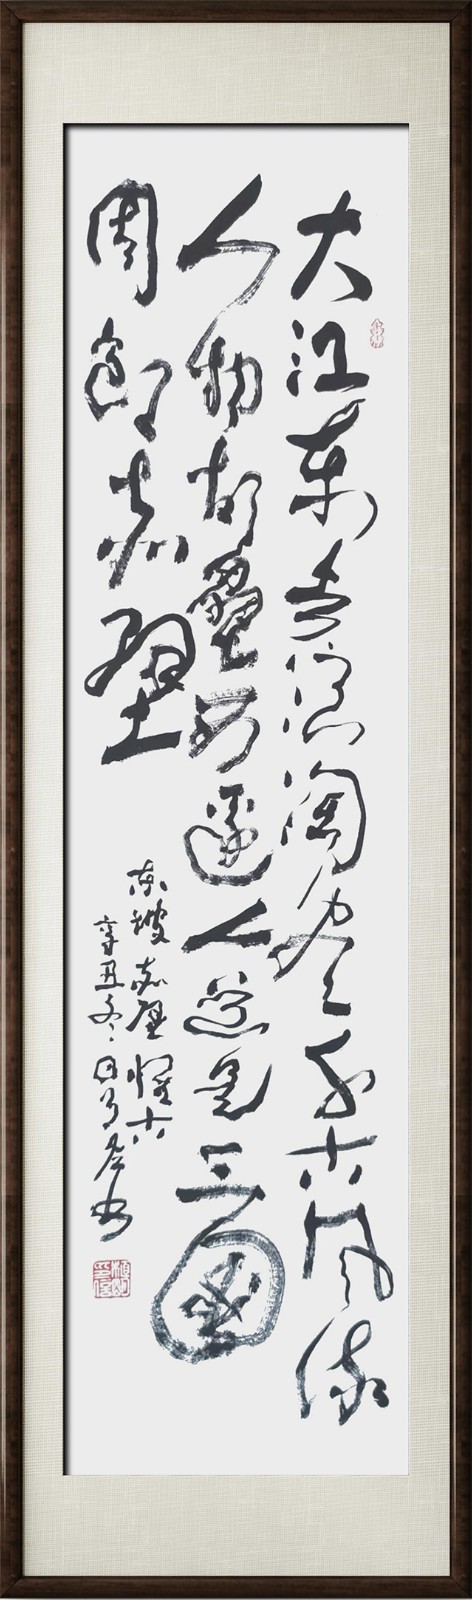 大江东去浪淘尽千古风流
人物故垒西边人道是三國
周郎赤壁
东坡赤壁怀古
辛丑冬月